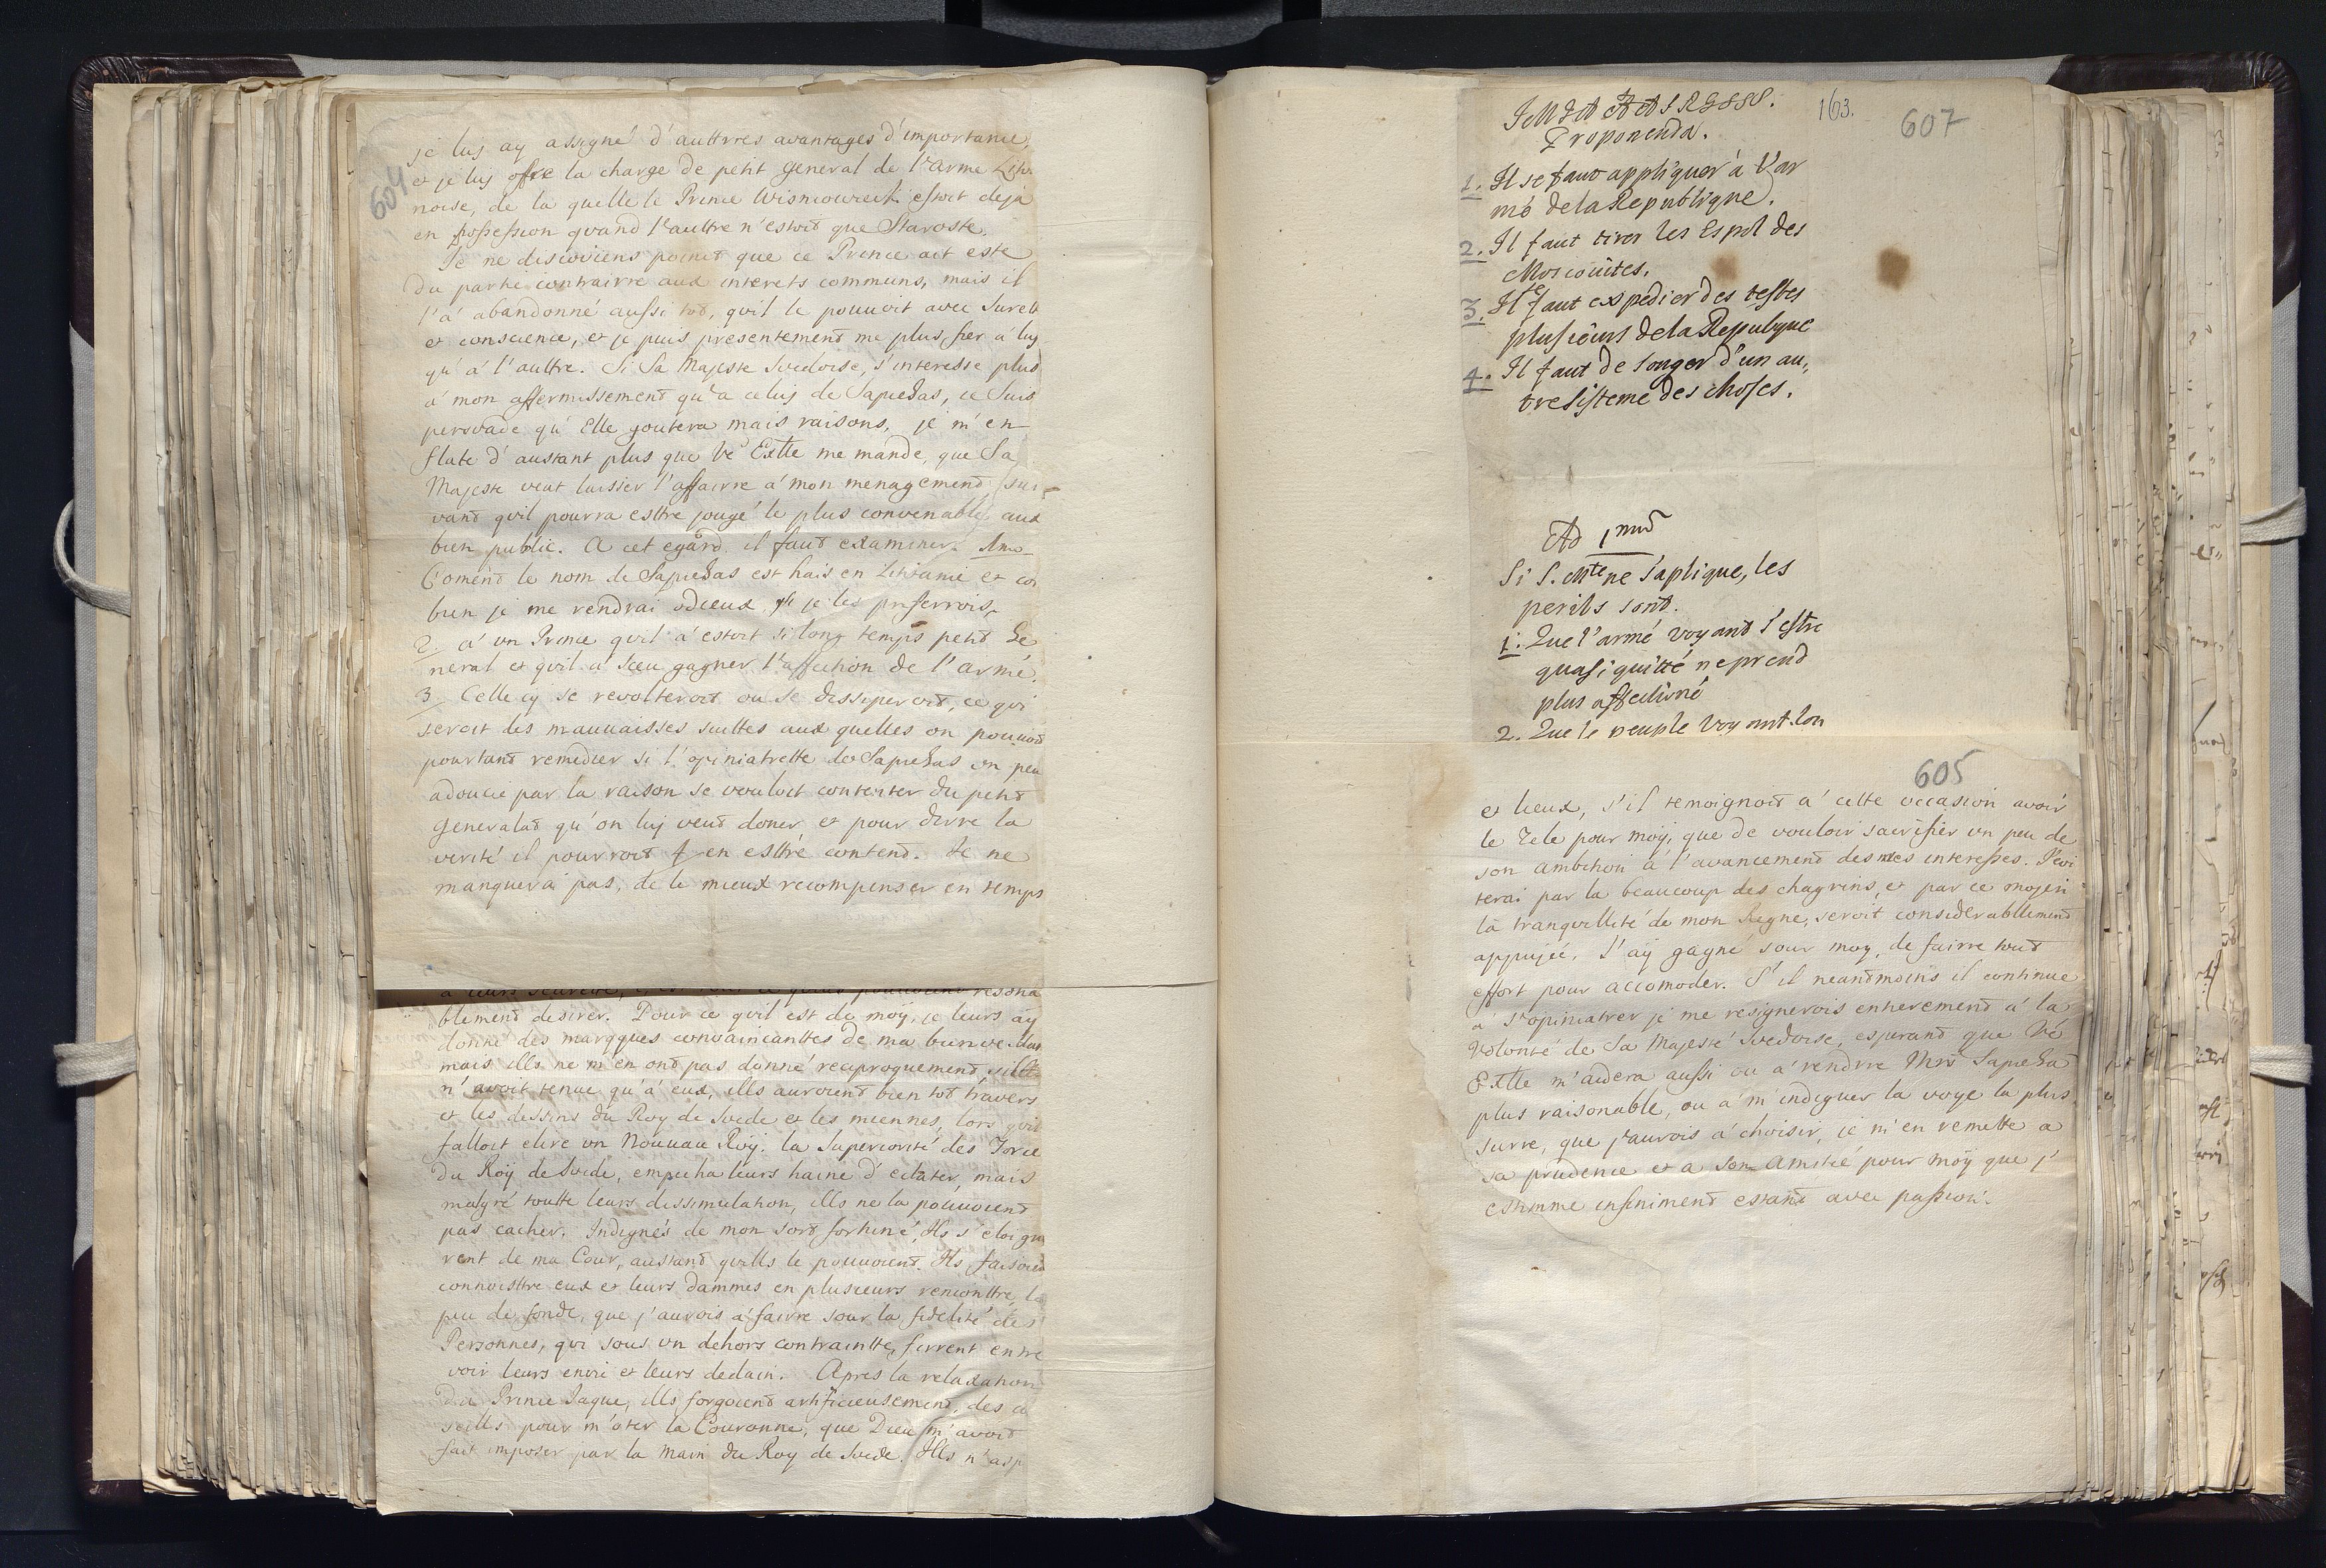 604
je luy ay assigné d'aultres avantages d'importance,
et je luy offre la charge de petit General de l'arme Lith
noise, de la quelle le Prince Wisniowiecki estoit deja
en possession quand l'aultre n'estoit que Staroste.
Je ne disconviens point que ce Prince ait este
du parti contrairre aux interets communs, mais il
l'a abandonné aussi tot, quil le pouvoit avec Surete
et conscience, et je puis presentement me plus fier a luy
qu'a l'aultre. Si Sa Majeste Suedoise, s'interesse plus
a mon affermissement qu'a celuy de Sapiehas, je suis
persuade qu'Elle goutera mais raisons, je m'en
flate d'austant plus que Vé Exlle me mande, que Sa
Majeste veut laisser l'affairre a mon menagement sui-
vant quil pourra esltre jougé le plus convenable aux
bien public. A cet egard il faut examiner. Imo
Coment le nom de Sapiehas est hais en Lithvanie et com
bien je me rendrai odieux, si je les preferrois,
2. a un Prince quil a estoit si long temps petit Ge
neral et quil a sceu gagner l'affection de l'armé.
3 Celle cy se revolteroit ou se dissiperoit, ce qui
seroit des mauvaisses suittes aux quelles on pouvoit
pourtant remedier si l'opiniatrette des Sapiehas un peu
adoucie par la raison se vouloit contenter du petit
Generalat qu'on luy veut doner, et pour dirre la
verité il pourroit en esltre contend. Je ne
manquerai pas, de le mieux recompenser en temps
blement desirer. Pour ce quil est de moÿ, je leurs ay
donné des marques convaincanttes de ma bienveillan
mais ills ne m'en ont pas donné reciproquement, sill
n'avoit tenue qu'a eux, ills auroient bien tot travers
er les dessins du Roy de Suede et les miennes, lors quil
falloit elire un Nouveau Roÿ. la Superiorité des Force
du Roÿ de Suede, empecha leurs haine d'eclater, mais
malgré toutte leurs dissimulation, ills ne la pouvoient
pas cacher. Indignés de mon sort fortuné, Ils s'eloigne
rent de ma Cour, austant quills le pouvoient. Ils faisoient
connoisltre eux et leurs dammes en plusieurs rencontre le
peu de fonde, que j'aurois a fairre sour la fidelité des
Personnes, qui sous un dehors contraintte, firrent entre
voir leurs envi et leurs dedain. Apres la relaxation
du Prince Jaque, ills forgoient artificieusement, des con
seills pour m'oter la Couronne, que Dieu m'avoit
fait imposer par la main du Roy de Suede. Ills n'asp
163. 607
Proponenda.
1. Il se faut appliquer à l'ar
mé de la Republique.
2. Il faut tirer les Espol des
Moscouites.
3. Il faut expedier des testes
plusieurs de la Republique
4. Il faut de songer d'un au,,
tre sisteme des choses.
Ad 1mum
Si S. Mte ne s'aplique, les
perils sont.
1. Que l'armé voyant s'estre
quasi quitté ne prend
plus affectionné
2. Que le peuple voyant lon
605
et lieux, s'il temoignoit a cette occasion avoir
le zele pour moÿ, que de vouloir sacrifier un peu de
son ambition a l'avancement des mes interesses. J'evi
terai par la beaucoup des chagrins, et par ce moyen
la tranquillité de mon Regne, seroit considerablement
appuyée. J'aÿ gagné sour moy, de fairre tout
effort pour accomoder. S'il neantmoins il continue
a s'opiniatrer je me resignerois entierement a la
Volonté de Sa Majesté Suedoise, esperant que Vé
Exlle m'aidera aussi ou a rendre Mrs Sapieha
plus raisonable, ou a m'indiquer la voye la plus
surre, que j'aurois a choisir, je m'en remette a
sa prudence et a son Amitié pour moÿ que j'
estimme infiniment estant avec passion.